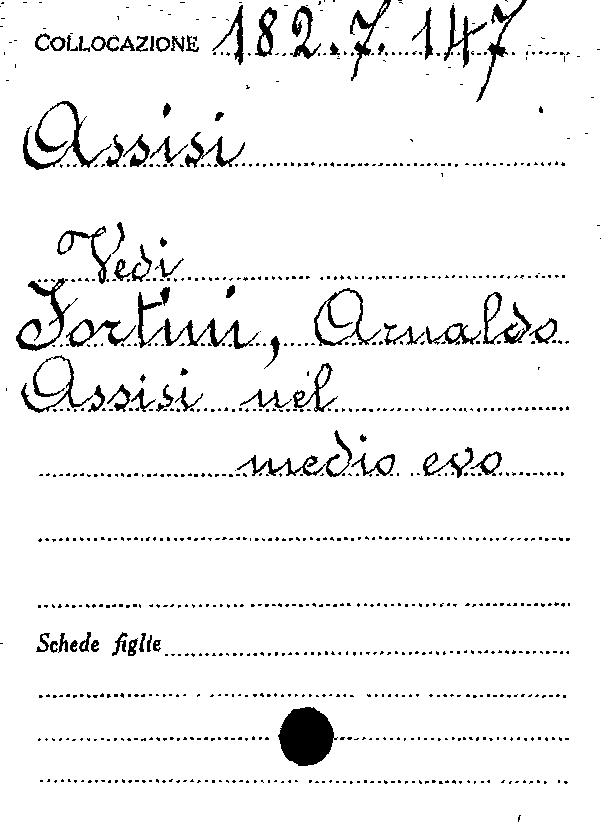 COLLOCAZIONE 182.7.147
Assisi
Vedi
Fortini, Arnaldo
Assisi nel
medio evo
Schede figlie